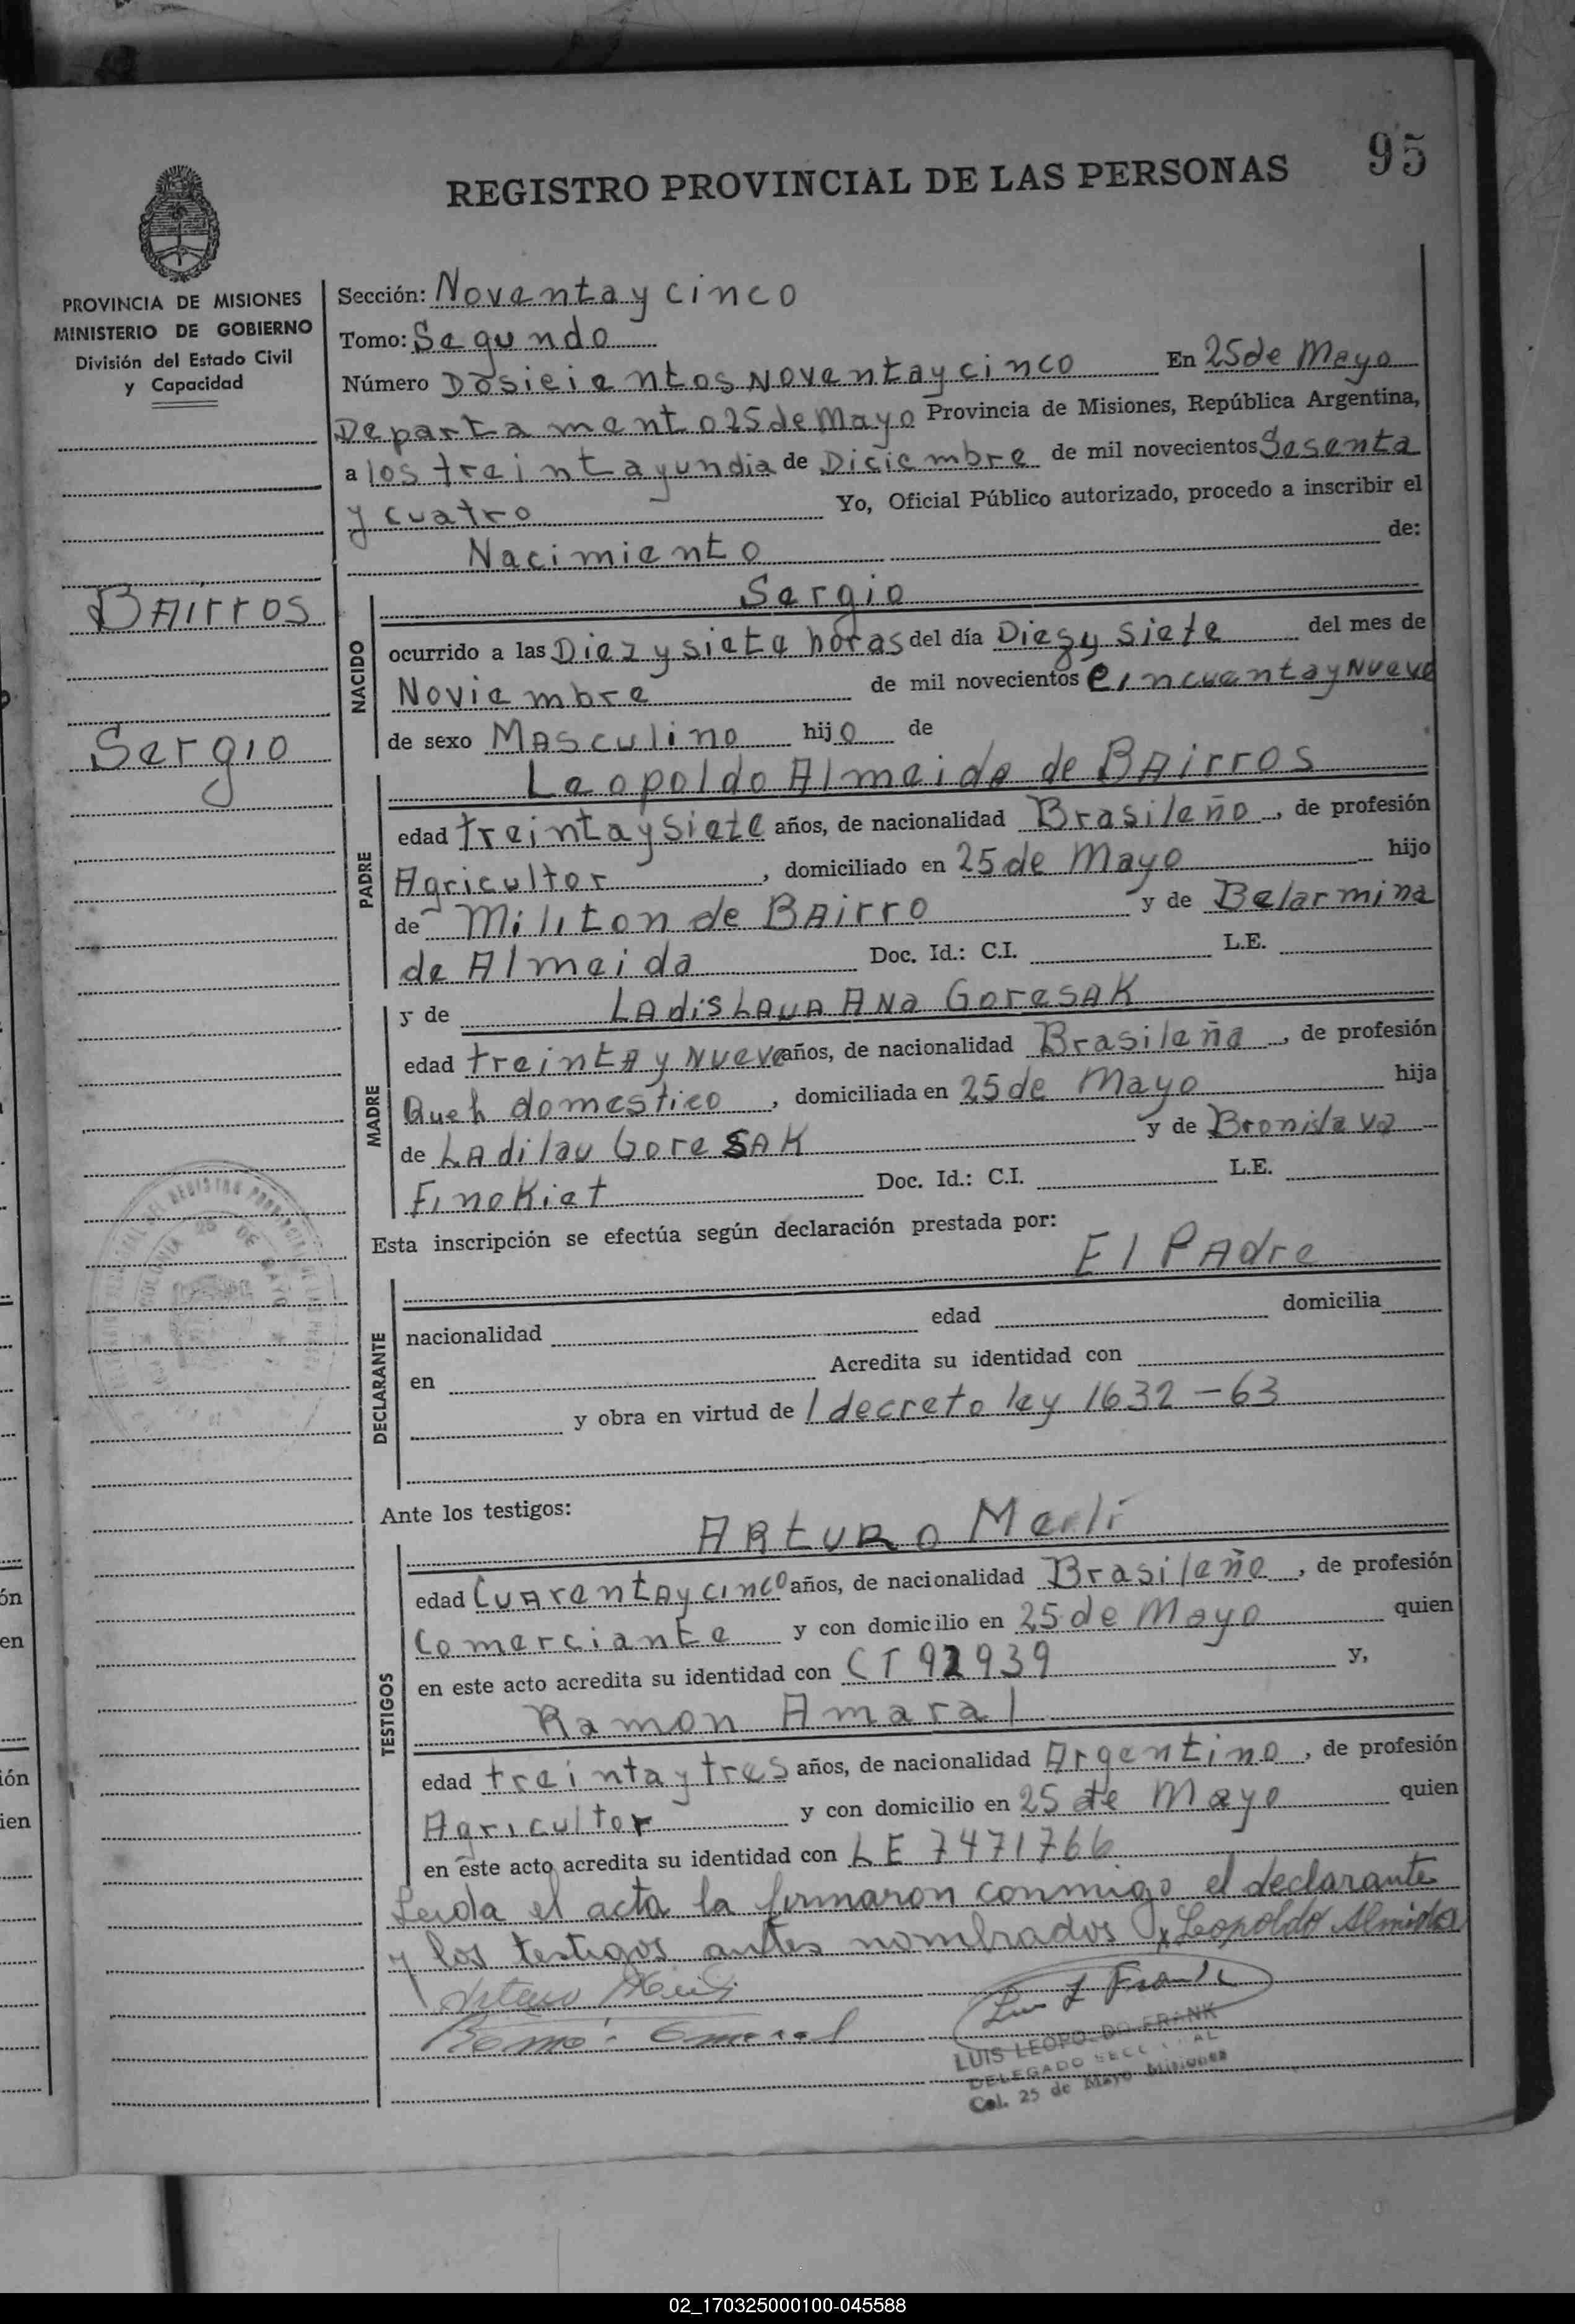 95
REGISTRO PROVINCIAL DE LAS PERSONAS
PROVINCIA DE MISIONES
MINISTERIO DE GOBIERNO
División del Estado Civil
y Capacidad
Bairros
Sergio
Sección: Noventa y cinco
Tomo: Segundo
Número Dosicientos Noventa y cinco En 25 de Mayo
Departamento 25 de Mayo Provincia de Misiones, República Argentina,
a los treinta y un dia de Diciembre de mil novecientos Sesenta
y cuatro Yo, Oficial Público autorizado, procedo a inscribir el
Nacimiento de:
Sergio
NACIDO
ocurrido a las Diez y siete horas del día Diez y siete del mes de
Noviembre de mil novecientos cincuenta y Nueve
de sexo Masculino hijo de
PADRE
Leopoldo Almeida de Bairros
edad treinta y siete años, de nacionalidad Brasileño, de profesión
Agricultor, domiciliado en 25 de Mayo hijo
de Militon de Bairro y de Belarmina
de Almeida Doc. Id.: C.I. L.E.
MADRE
y de Ladislava Ana Goresak
edad treinta y Nueve años, de nacionalidad Brasileña, de profesión
Queh domestico, domiciliada en 25 de Mayo hija
de Ladilau Goresak y de Bronislava
Finokiet Doc. Id.: C.I. L.E.
Esta inscripción se efectúa según declaración prestada por:
El Padre
DECLARANTE
nacionalidad edad domicilia
en Acredita su identidad con
y obra en virtud de l decreto ley 1632-63
Ante los testigos:
TESTIGOS
Arturo Merli
edad Cuarenta y cinco años, de nacionalidad Brasileño, de profesión
Comerciante y con domicilio en 25 de Mayo quien
en este acto acredita su identidad con CI 92939 y,
Ramon Amaral
edad treinta y tres años, de nacionalidad Argentino, de profesión
Agricultor y con domicilio en 25 de Mayo quien
en este acto acredita su identidad con LE 7471766
Leida el acta la firmaron conmigo el declarante
y los testigos antes nombrados Leopoldo Almida
LUIS LEOPOLDO FRANK
DELEGADO
Col. 25 de Mayo Misiones
02_170325000100-045588